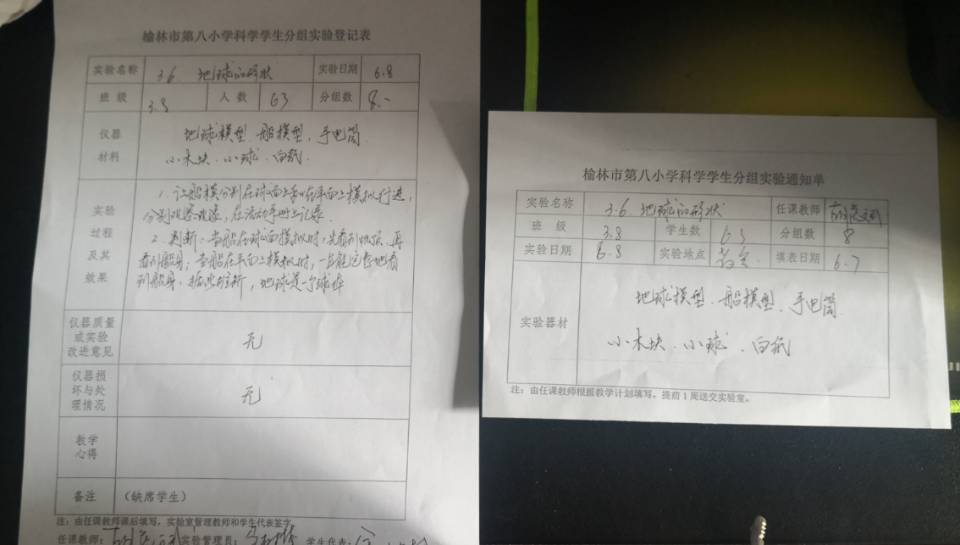 榆林市第八小学科学学生分组实验登记表
实验名称 3.6 地球的形状 实验日期 6.8
班级 3.8 人数 63 分组数 8
仪器材料
地球模型 船模型、手电筒
小木块、小球、白纸
实验过程及其效果
1. 让船模分别在球面上和在平面上模拟行进,
分别观察现象,在活动手册上记录
2. 判断:当船在球面模拟时,先看到帆, 再
看到船身;当船在平面上模拟时,一直能完整地看
到船身。据此推断,地球是一个球体
仪器质量或实验改进意见 无
仪器损坏与处理情况 无
教学心得
备注 (缺席学生)
注:由任课教师课后填写,实验室管理教师和学生代表签字
任课教师: 实验管理员: 学生代表:
榆林市第八小学科学学生分组实验通知单
实验名称 3.6 地球的形状 任课教师
班级 3.8 学生数 63 分组数 8
实验日期 6.8 实验地点 教室 填表日期 6.7
实验器材
地球模型、船模型、手电筒
小木块、小球、白纸
注:由任课教师根据教学计划填写,提前1周送交实验室。